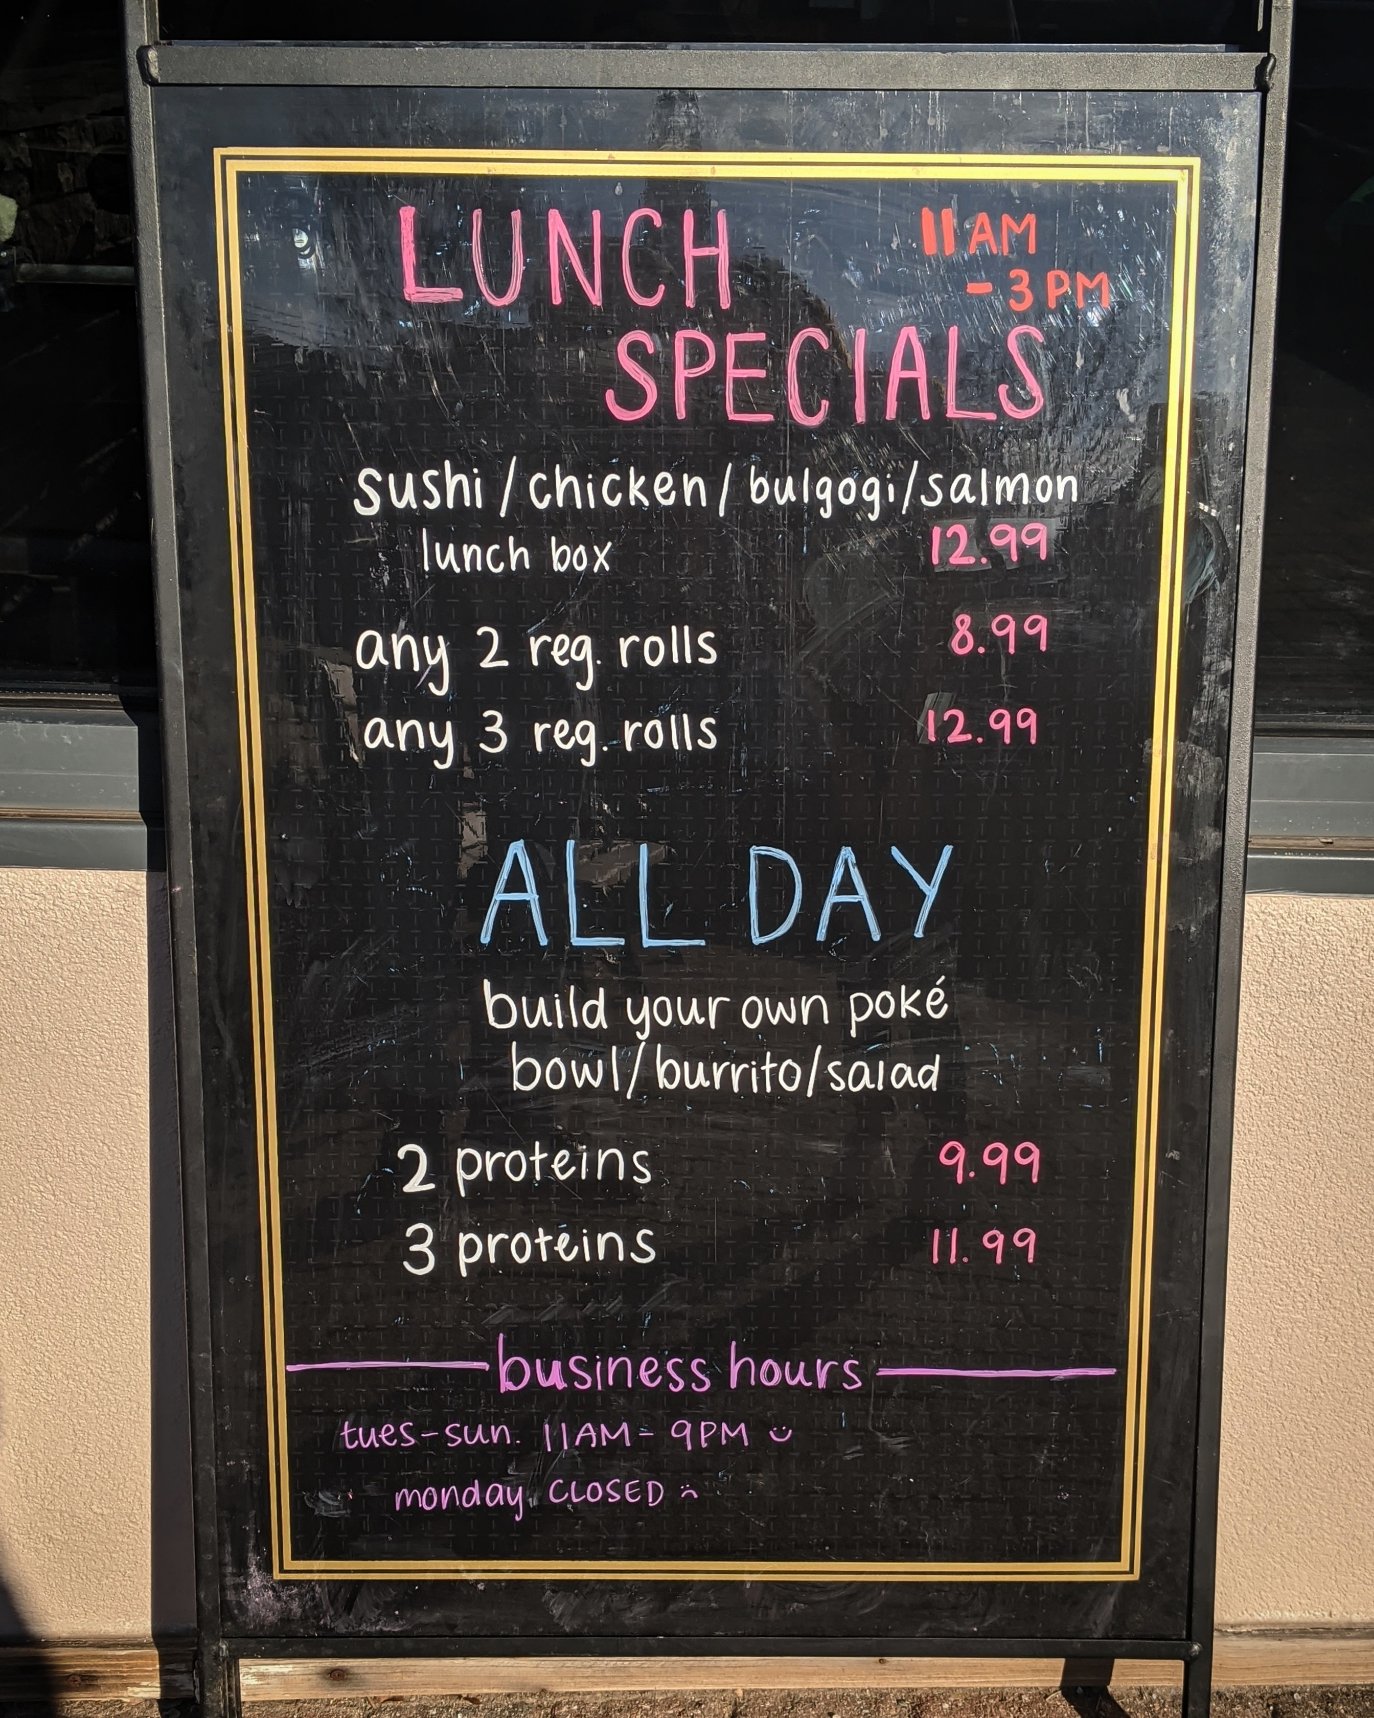 LUNCH
11AM
- 3PM
SPECIALS
sushi/chicken/bulgogi/salmon
lunch box 12.99
any 2 reg. rolls 8.99
any 3 reg. rolls 12.99
ALL DAY
build your own poké
bowl/burrito/salad
2 proteins 9.99
3 proteins 11.99
business hours
tues-sun. 11AM - 9PM
monday CLOSED